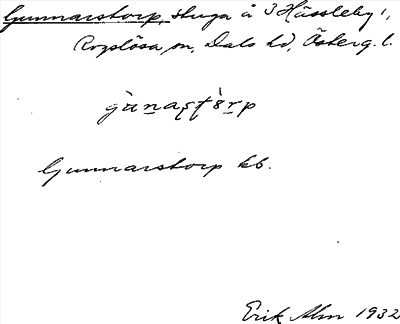 Gunnarstorp, stuga å 3 Hässleby 1,
Orglösa sn, Dals hd, Österg. l.
gùnaʂʈòrp
Gunnarstorp kb.
Erik Alm 1932